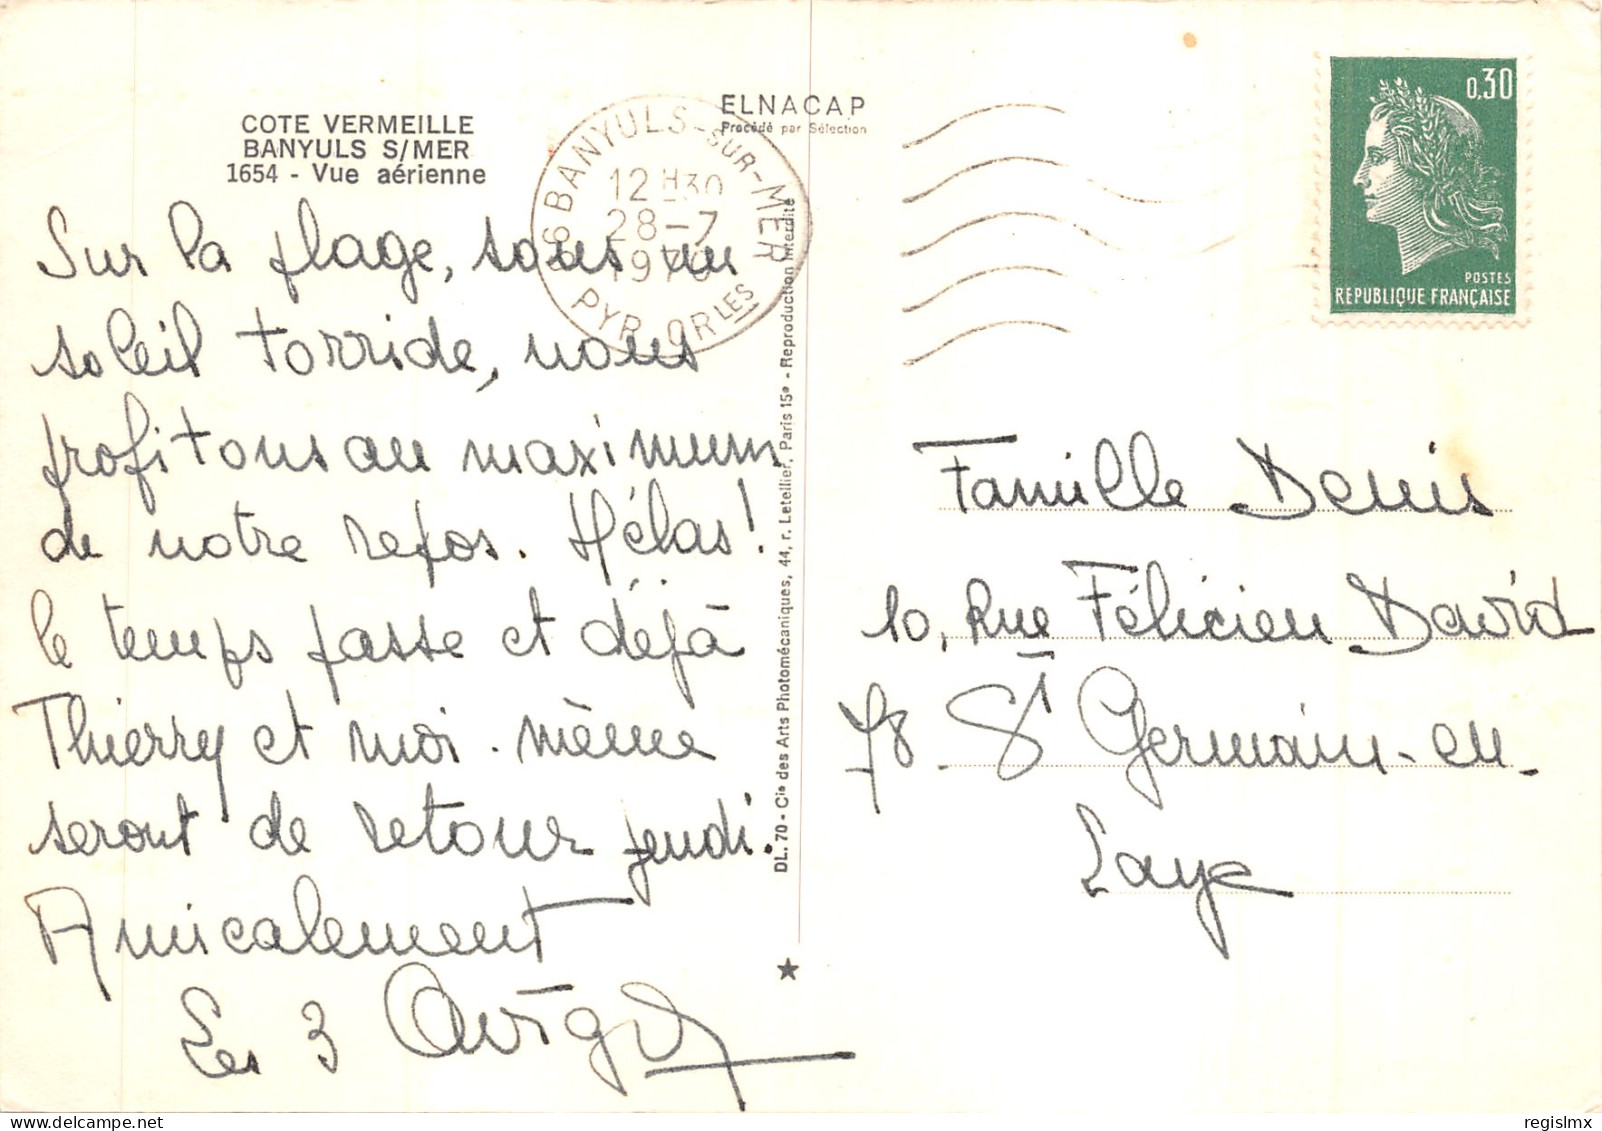 COTE VERMEILLE
BANYULS S/MER
1654 - Vue aérienne
ELNACAP
Procédé par Sélection
66 BANYULS-SUR-MER
12H30
28-7
1970
PYR.ORLES
0,30
POSTES
REPUBLIQUE FRANÇAISE
Sur la plage, sous un
soleil torride, nous
profitons au maximum
de notre repos. Hélas!
le temps passe et déjà
Thierry et moi-même
seront de retour jeudi.
Amicalement
Les 3
DL. 70 - Cie des Arts Photomécaniques, 44, r. Letellier, Paris 15e - Reproduction interdite
Famille Denis
10, Rue Félicien David
78 St Germain-en-
Laye
regislmx